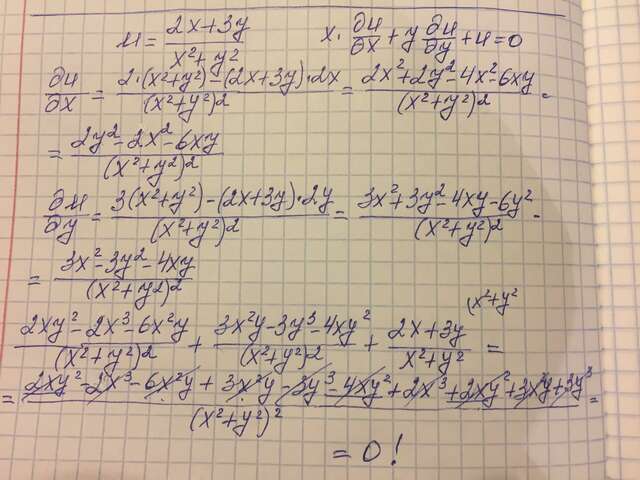 u = (2x+3y)/(x²+y²)    x·∂u/∂x + y ∂u/∂y + u = 0
∂u/∂x = (2·(x²+y²) – (2x+3y)·2x)/(x²+y²)² = (2x²+2y²–4x²–6xy)/(x²+y²)² =
= (2y²–2x²–6xy)/(x²+y²)²
∂u/∂y = (3(x²+y²) – (2x+3y)·2y)/(x²+y²)² = (3x²+3y²–4xy–6y²)/(x²+y²)² =
= (3x²–3y²–4xy)/(x²+y²)²
(x²+y²
(2xy²–2x³–6x²y)/(x²+y²)² + (3x²y–3y³–4xy²)/(x²+y²)² + (2x+3y)/(x²+y²) =
= (2xy²–2x³–6x²y+3x²y–3y³–4xy²+2x³+2xy²+3x²y+3y³)/(x²+y²)² =
= 0!